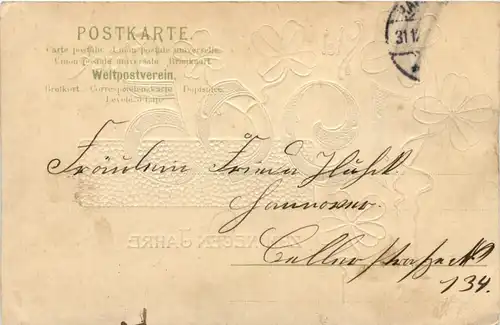 POSTKARTE.
Carte postale Union postale universelle
Unione postale universale Briefkort
Weltpostverein.
Brefkort Correspondenzkarte Dopisnice
Levelező-Lap
31.12
Fräulein Frieda
Hannover.
Cellerstrasse No
134.
ZUM NEUEN JAHRE